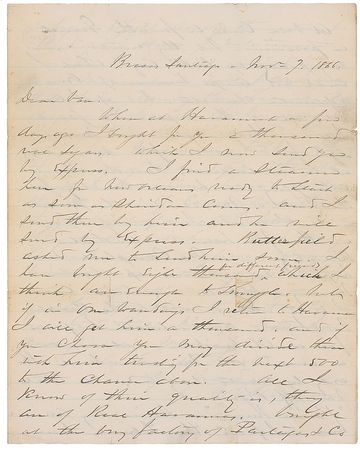 Brazos Santiago Nov 9. 1866.
Dear Van:
When at Havana a few
days ago I bought for you a thousand
nice segars. which I now send you
by express. I find a steamer
here for New Orleans ready to start
as soon as Sheridan comes. and I
send them by him and he will
send by Express. Butterfield
asked me to send him some. I
have bought eight thousand, which I
for different friends
think are enough to smuggle but
if in our wanderings I return to Havana
I will get him a thousand. and if
you choose you may divide them
with him trusting for the next 500
to the chance above. All I
know of their quality is, they
are of Real Havanas. bought
at the very factory of Partagas & Co